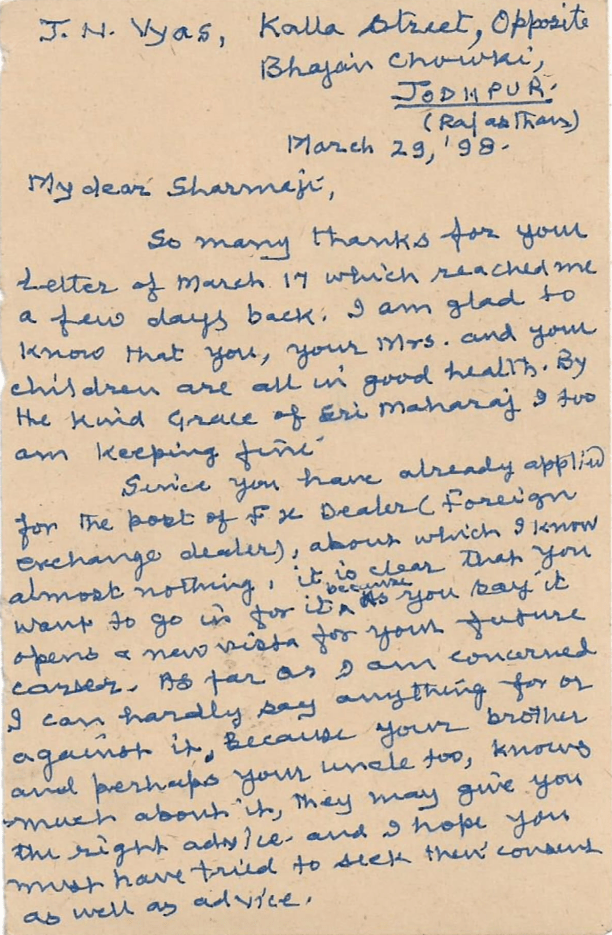 J. N. Vyas, Kalla Street, Opposite
Bhajan Chowki,
JODHPUR.
(Rajasthan)
March 29, '98.
My dear Sharmaji,
So many thanks for your
Letter of March 17 which reached me
a few days back. I am glad to
know that you, your Mrs. and your
children are all in good health. By
the kind Grace of Sri Maharaj I too
am keeping fine.
Since you have already applied
for the post of F X Dealer (Foreign
exchange dealer), about which I know
almost nothing, it is clear that you
want to go in for it because as you say it
opens a new vista for your future
career. As far as I am concerned
I can hardly say anything for or
against it, Because your brother
and perhaps your uncle too, knows
much about it, they may give you
the right advice and I hope you
must have tried to seek their consent
as well as advice.